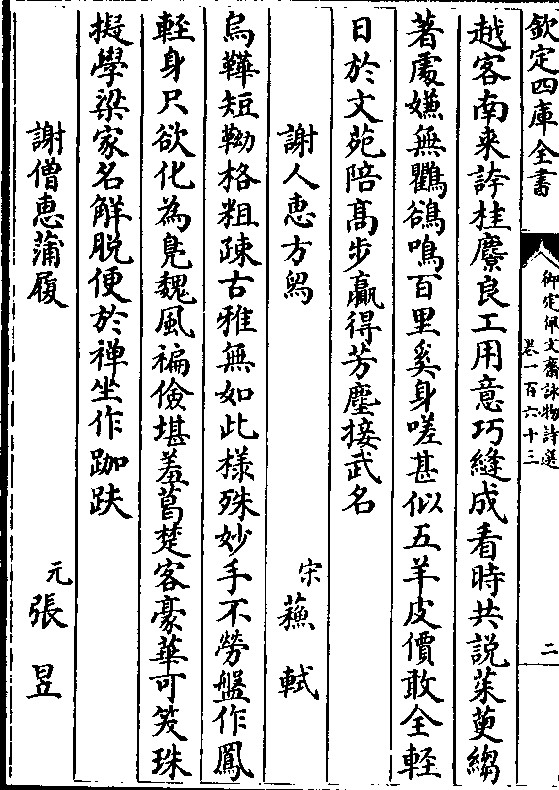 欽定四庫全書
御定佩文齋詠物詩選
卷一百六十三
二
越客南來誇桂麖良工用意巧縫成看時共說茱萸縐
著處嫌無鸜鵒鳴百里奚身嗟甚似五羊皮價敢全輕
日於文苑陪高步贏得芳塵接武名
謝人惠方舄
宋蘓軾
烏鞾短靿格粗疎古雅無如此樣殊妙手不勞盤作鳳
輕身尺欲化為鳬魏風褊儉堪羞葛楚客豪華可笑珠
擬學梁家名解脱便於禅坐作跏趺
謝僧惠蒲履
元張昱